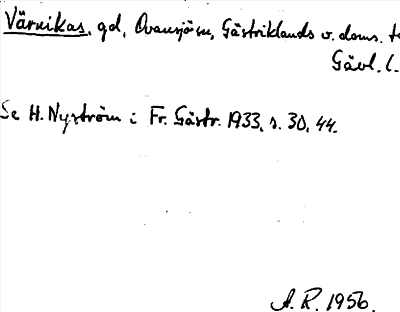 Värnikas, gd, Ovansjösn, Gästriklands v. doms. t
Gävl. l.
Se H. Nyström i Fr. Gästr. 1933, s. 30, 44.
A. R. 1956.